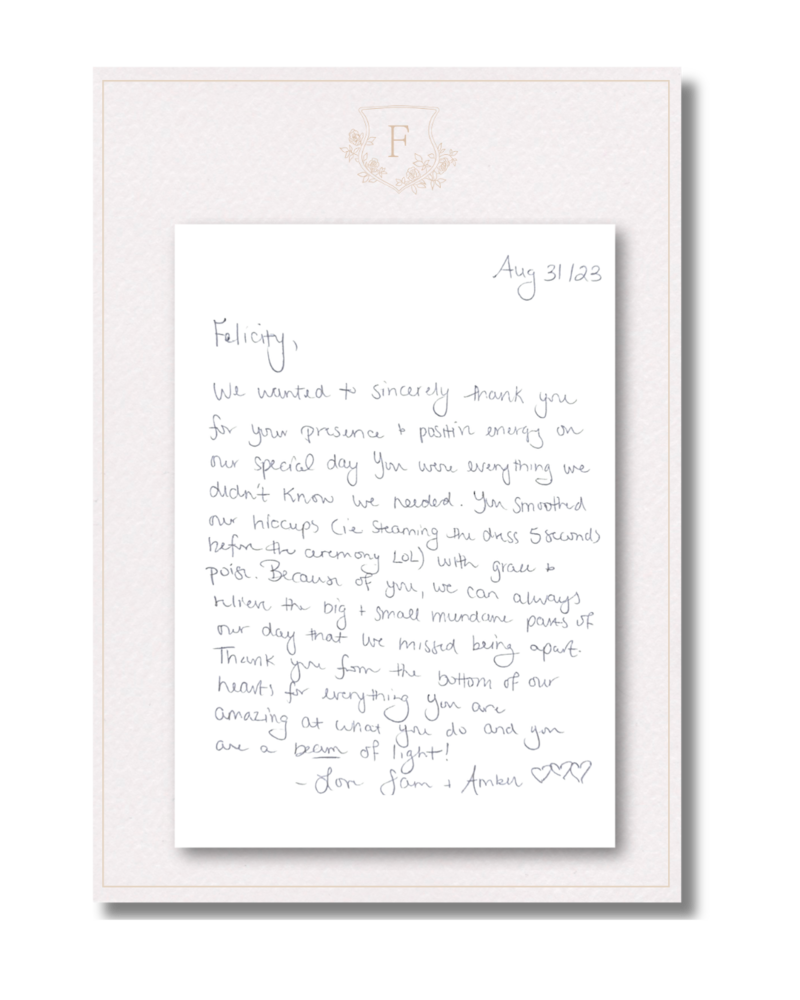 F
Aug 31/23
Felicity,
We wanted to sincerely thank you
for your presence + positive energy on
our special day You were everything we
didn't know we needed. You smoothed
our hiccups (ie steaming the dress 5 seconds
before the ceremony LOL) with grace +
poise. Because of you, we can always
relieve the big + small mundane parts of
our day that we missed being apart.
Thank you from the bottom of our
hearts for everything you are
amazing at what you do and you
are a beam of light!
- Love Sam + Amber ♡♡♡♡